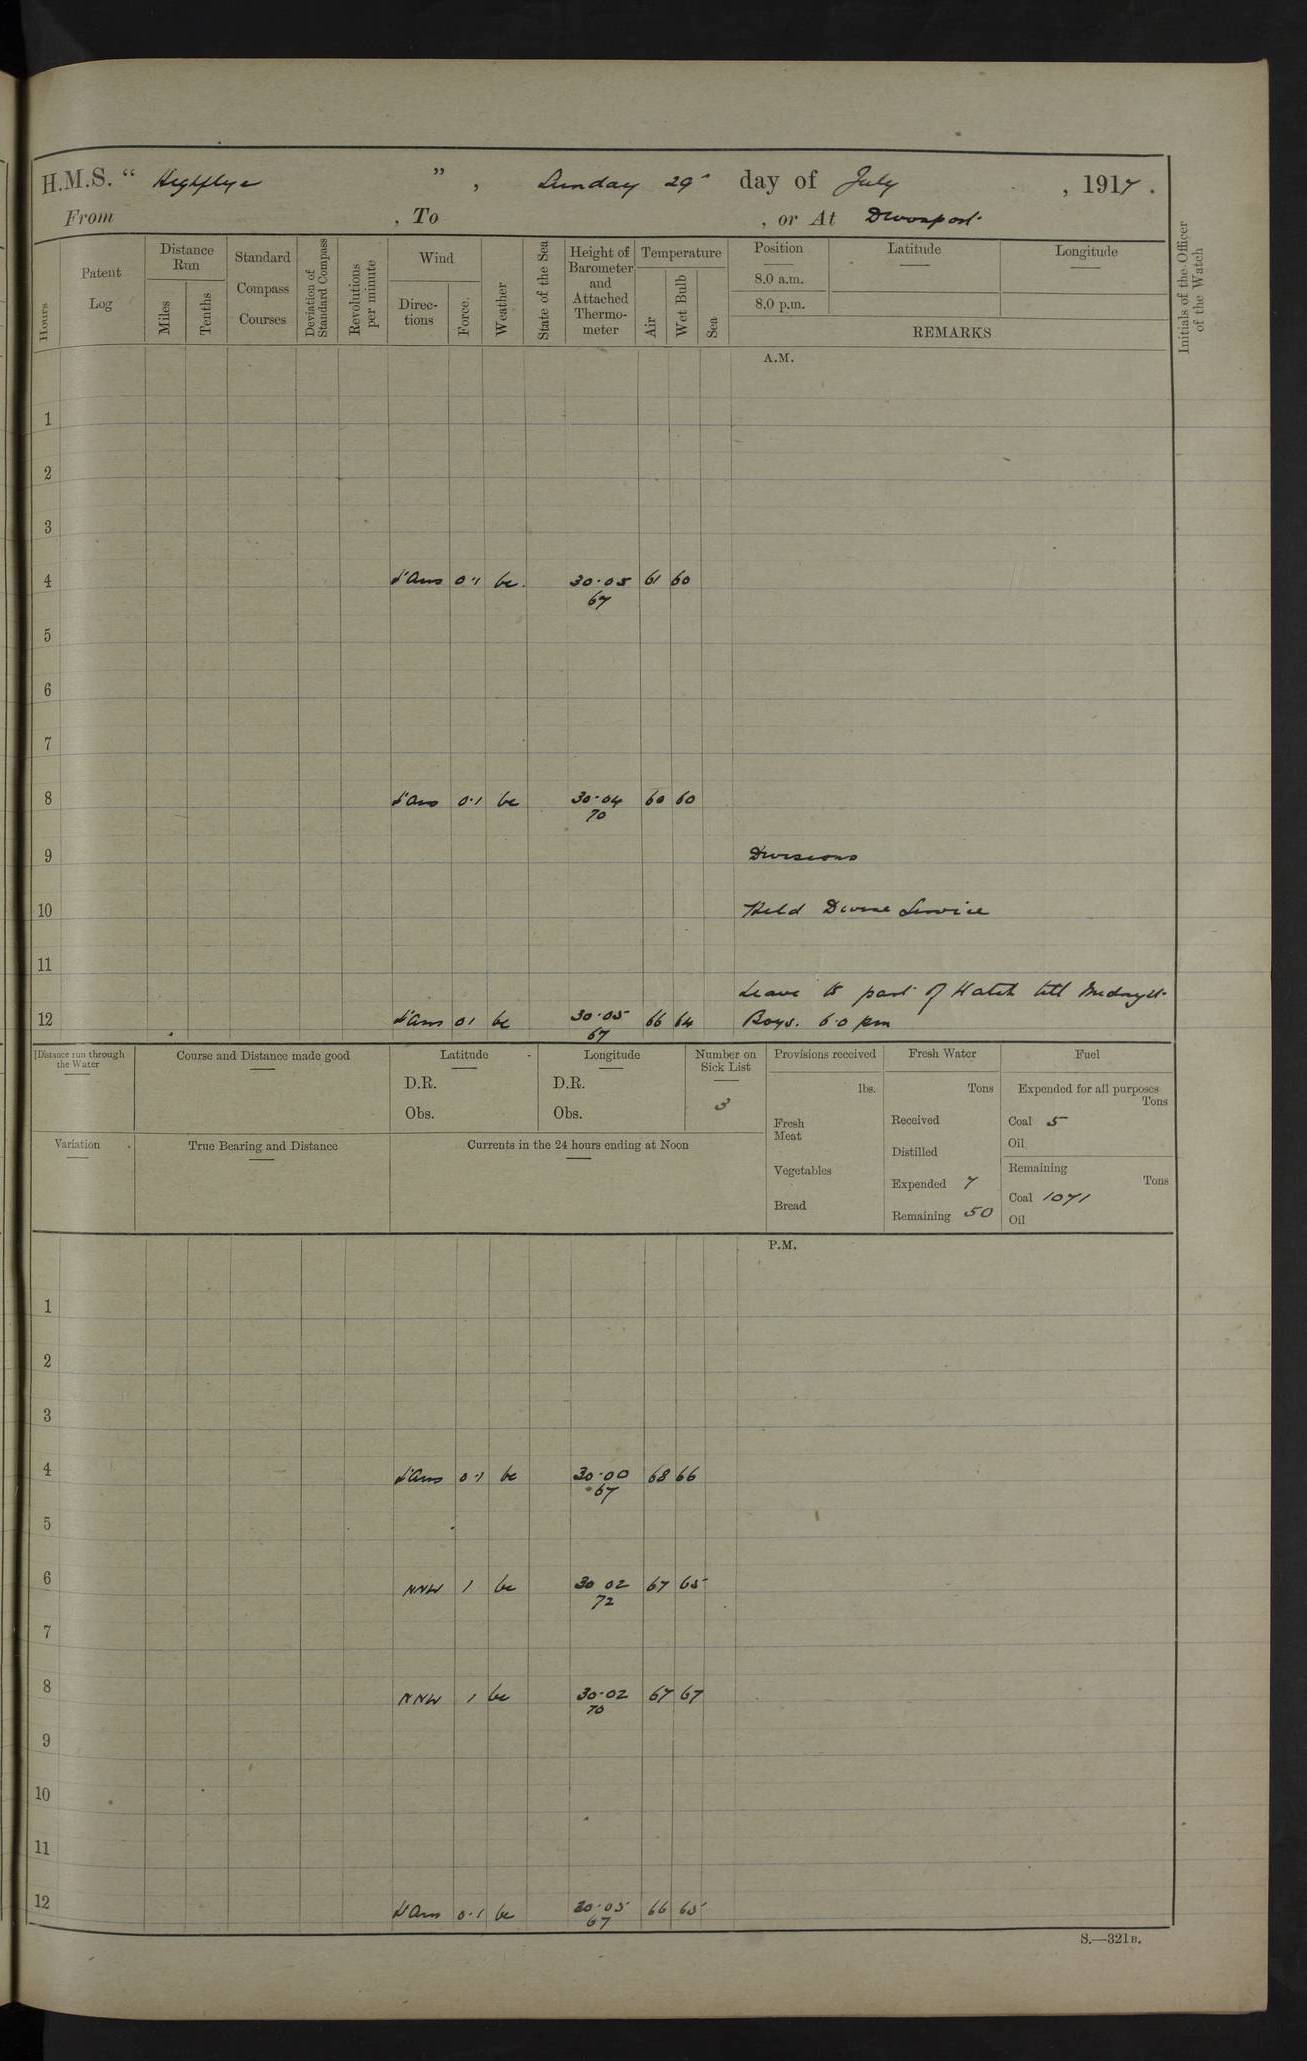 H.M.S. “ Highflyer ” , Sunday 29th day of July , 1917 .
From , To , or At Devonport
Hours
Patent Log
Distance Run
Miles
Tenths
Standard Compass Courses
Deviation of Standard Compass
Revolutions per minute
Wind
Directions
Force
Weather
State of the Sea
Height of Barometer and Attached Thermometer
Temperature
Air
Wet Bulb
Sea
Position
8.0 a.m.
8.0 p.m.
Latitude
Longitude
REMARKS
Initials of the Officer of the Watch
A.M.
1
2
3
4 0·1 bc 30·05 61 60
67
5
6
7
8 0·1 bc 30·04 60 60
70
9 Divisions
10 Held Divine Service
11
Leave to part of Watch till Midnight
12 0·1 bc 30·05 66 64 Boys. 6·0 pm
67
Distance run through the Water
Course and Distance made good
Latitude
D.R.
Obs.
Longitude
D.R.
Obs.
Number on Sick List
3
Provisions received
lbs.
Fresh Meat
Vegetables
Bread
Fresh Water
Tons
Received
Distilled
Expended 7
Remaining 50
Fuel
Expended for all purposes
Tons
Coal 5
Oil
Remaining
Tons
Coal 1071
Oil
Variation
True Bearing and Distance
Currents in the 24 hours ending at Noon
P.M.
1
2
3
4 0·1 bc 30·00 68 66
67
5
6 NNW 1 bc 30 02 67 65
72
7
8 NNW 1 bc 30·02 67 67
70
9
10
11
12 0·1 bc 30·05 66 65
67
S.—321B.